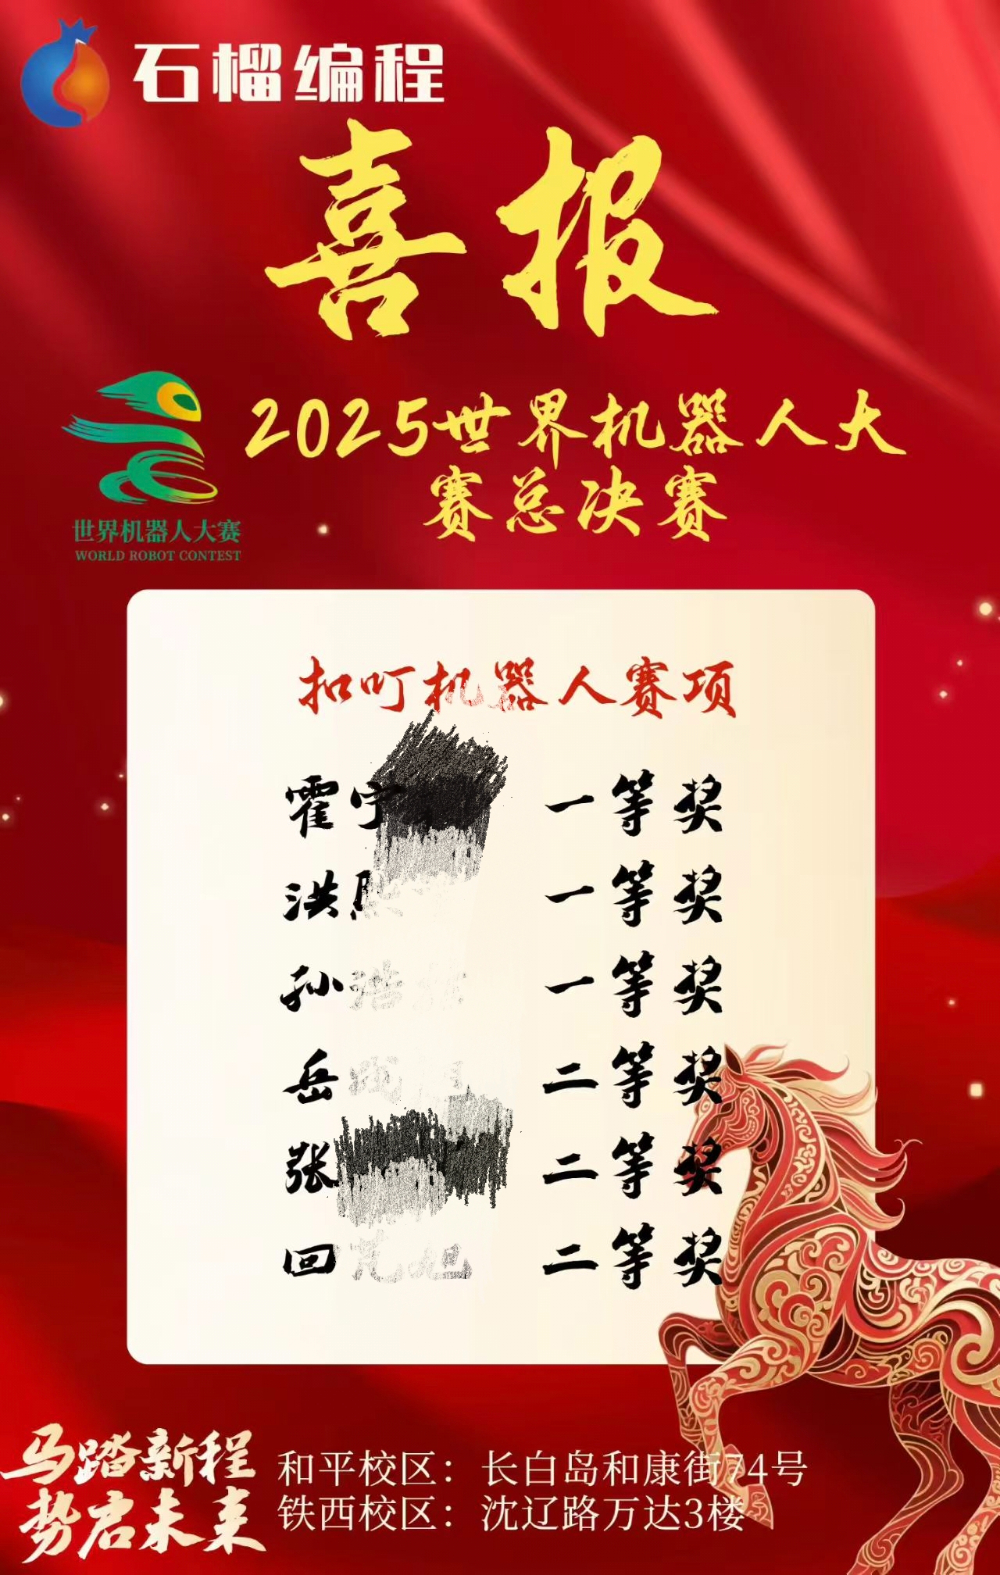 石榴编程
喜报
2025世界机器人大
赛总决赛
世界机器人大赛
WORLD ROBOT CONTEST
扣叮机器人赛项
霍宁 一等奖
洪 一等奖
孙浩 一等奖
岳 二等奖
张 二等奖
回 旭 二等奖
马踏新程
势启未来
和平校区：长白岛和康街74号
铁西校区：沈辽路万达3楼